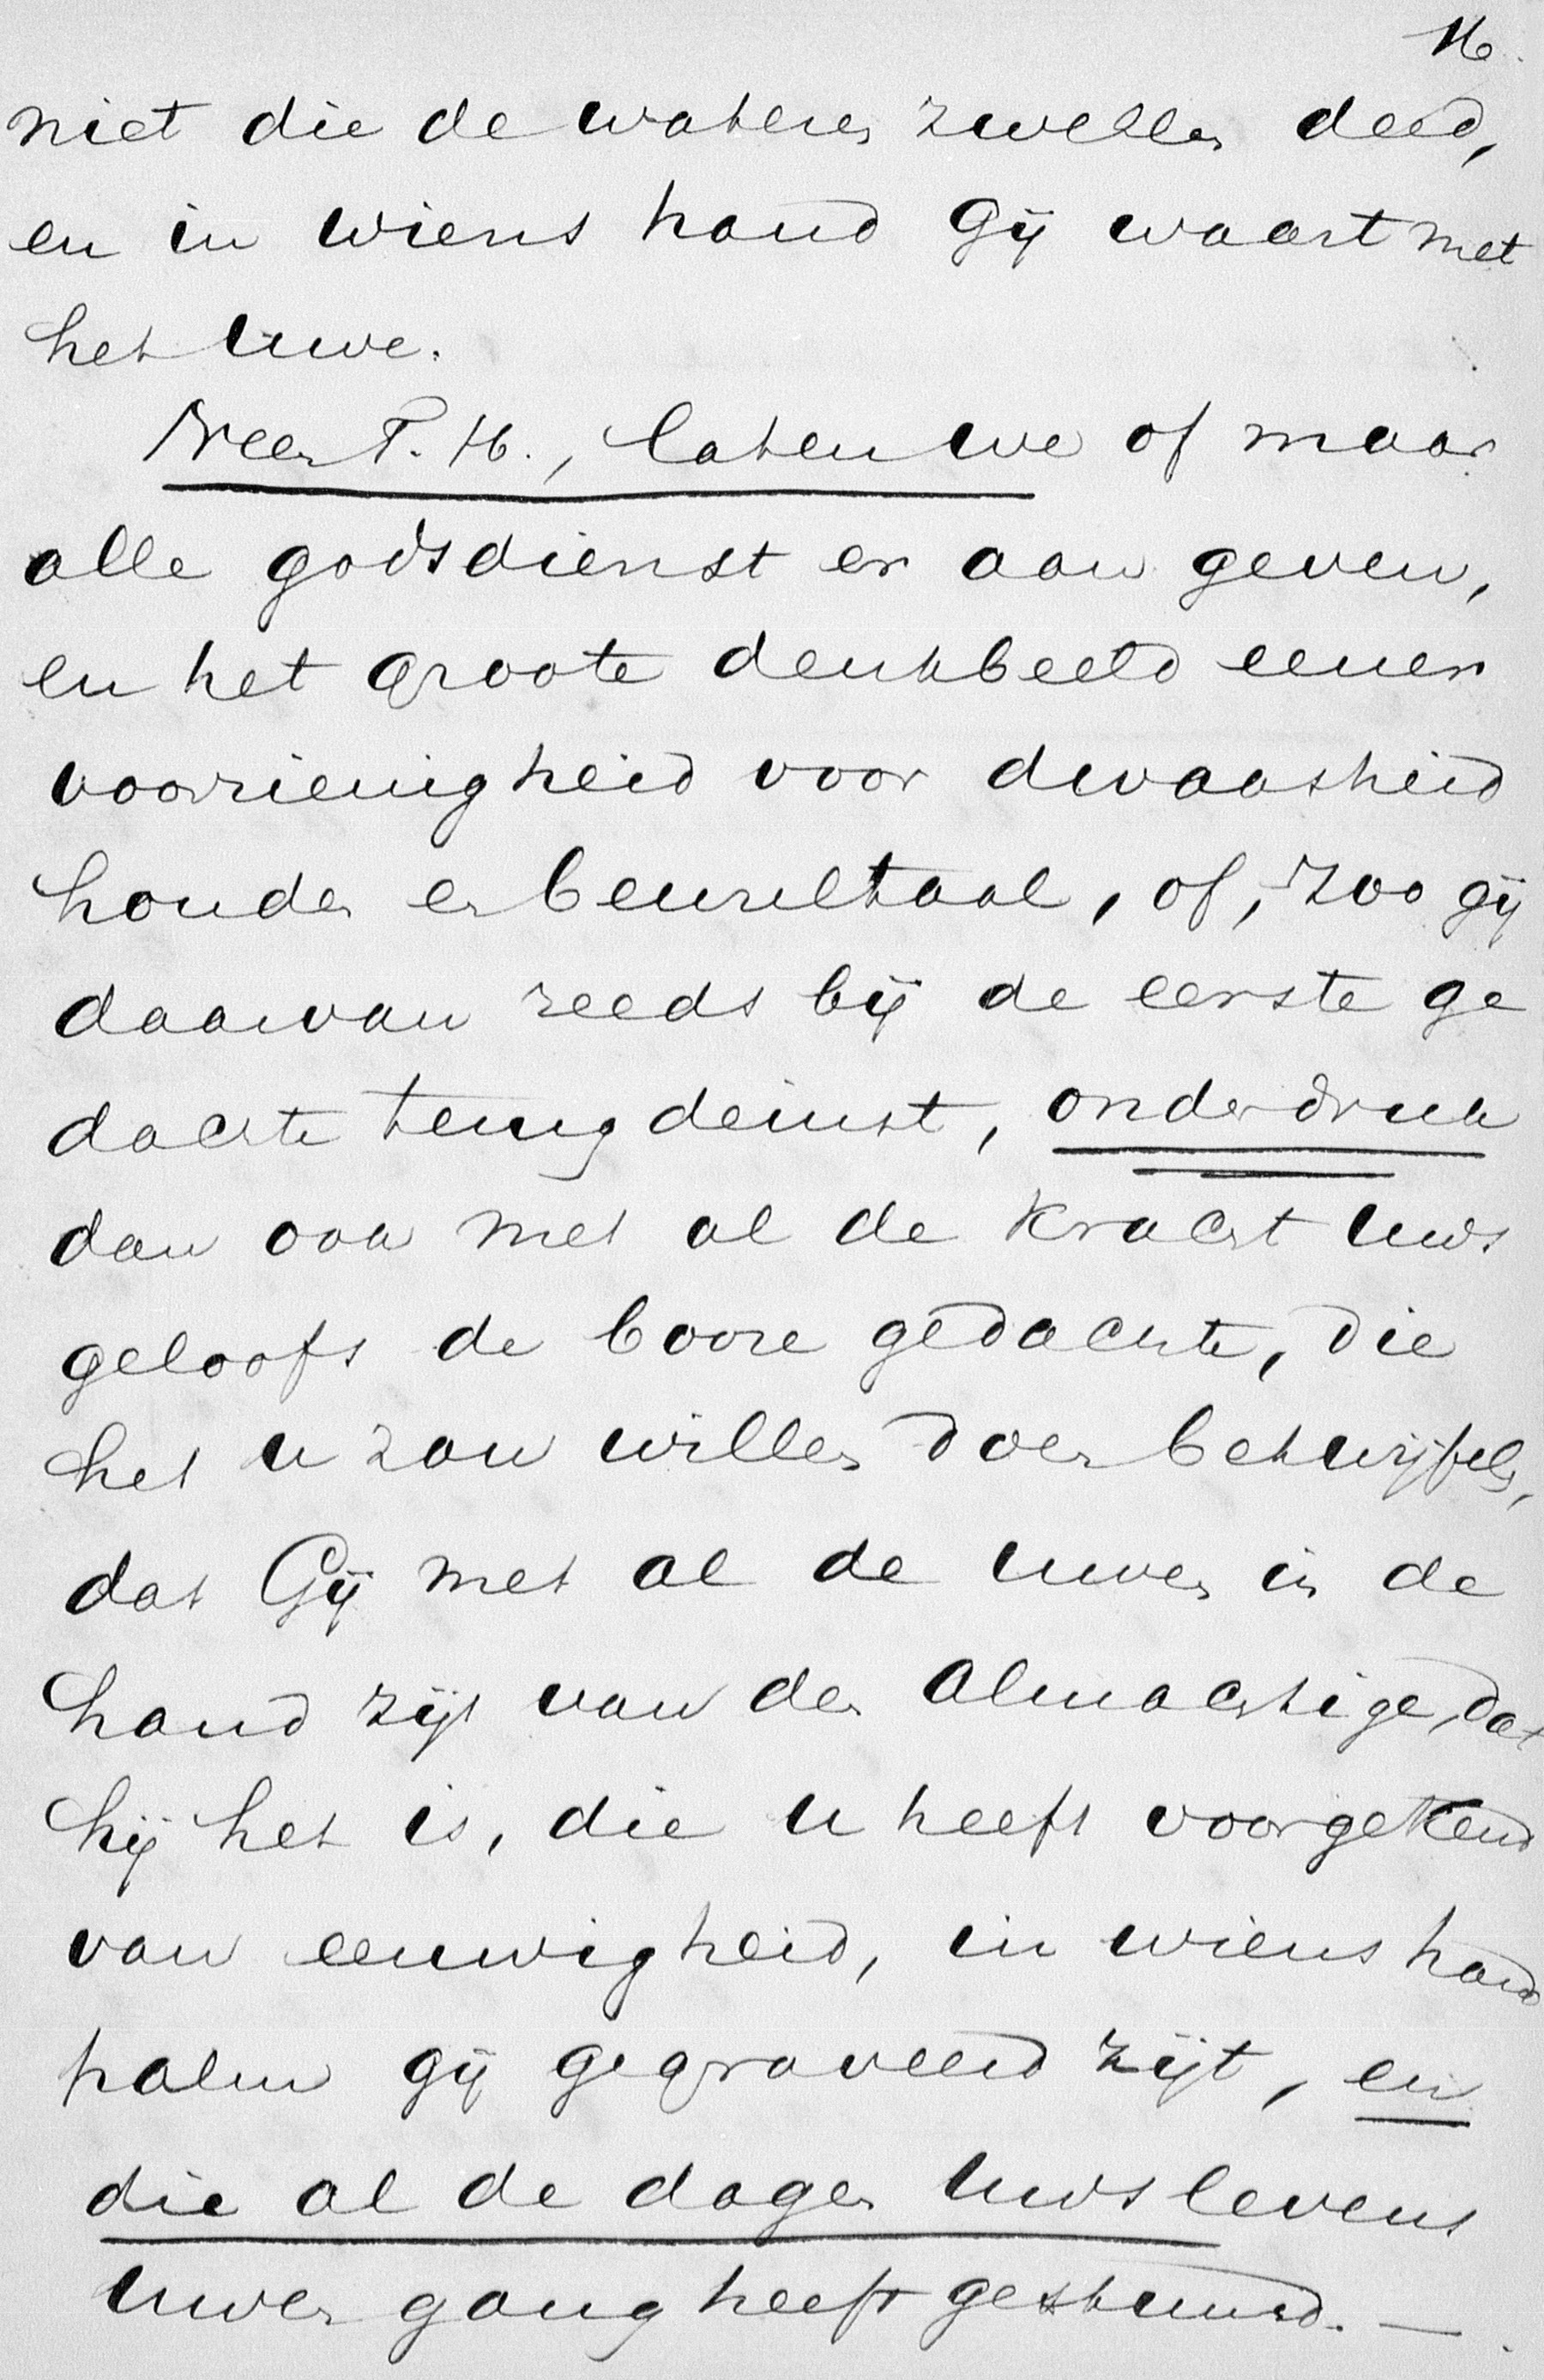 16.
niet die de wateren zwellen deed,
en in wiens hand Gij waart met
het Uwe.
Neen T. H., laten we of maar
alle godsdienst er aan geven,
en het groote denkbeeld eener
voorzienigheid voor dwaasheid
houden en beuzeltaal, of, zoo gij
daarvan reeds bij de eerste ge
dachte terugdeinst, onderdruk
dan ook met al de kracht uws
geloofs de booze gedachte, die
het u zou willen doen betwijfelen,
dat Gij met al de uwen in de
hand zijt van den Almachtige, dat
hij het is, die u heeft voorgekend
van eeuwigheid, in wiens hand
palm gij gegraveerd zijt, en
die al de dagen uws levens
uwen gang heeft gestuurd. —